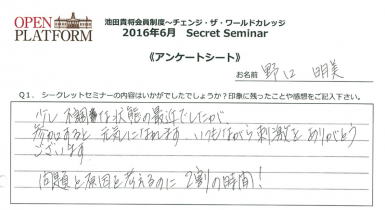 OPEN
PLATFORM
池田貴将会員制度～チェンジ・ザ・ワールドカレッジ
2016年6月 Secret Seminar
《アンケートシート》
お名前 野口 明美
Q1. シークレットセミナーの内容はいかがでしたでしょうか？印象に残ったことや感想をご記入下さい。
少し不調な状態の最近でしたが、
参加すると元気になれます。いつもながら刺激をありがとう
ございます。
問題と原因を考えるのに2割の時間！